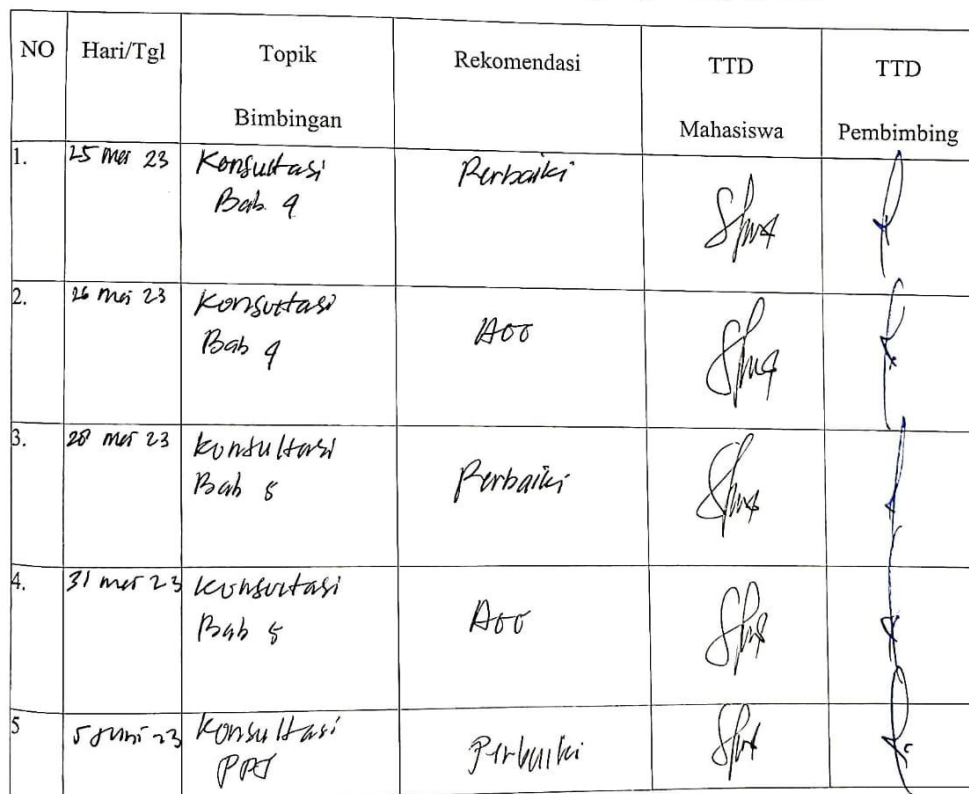 NO Hari/Tgl Topik Bimbingan Rekomendasi TTD Mahasiswa TTD Pembimbing
1. 25 mei 23 Konsultasi Perbaiki
Bab 4
2. 26 mei 23 Konsultasi Acc
Bab 4
3. 28 mei 23 Konsultasi Perbaiki
Bab 5
4. 31 mei 23 Konsultasi Acc
Bab 5
5 5 Juni 23 Konsultasi Perbaiki
PPT